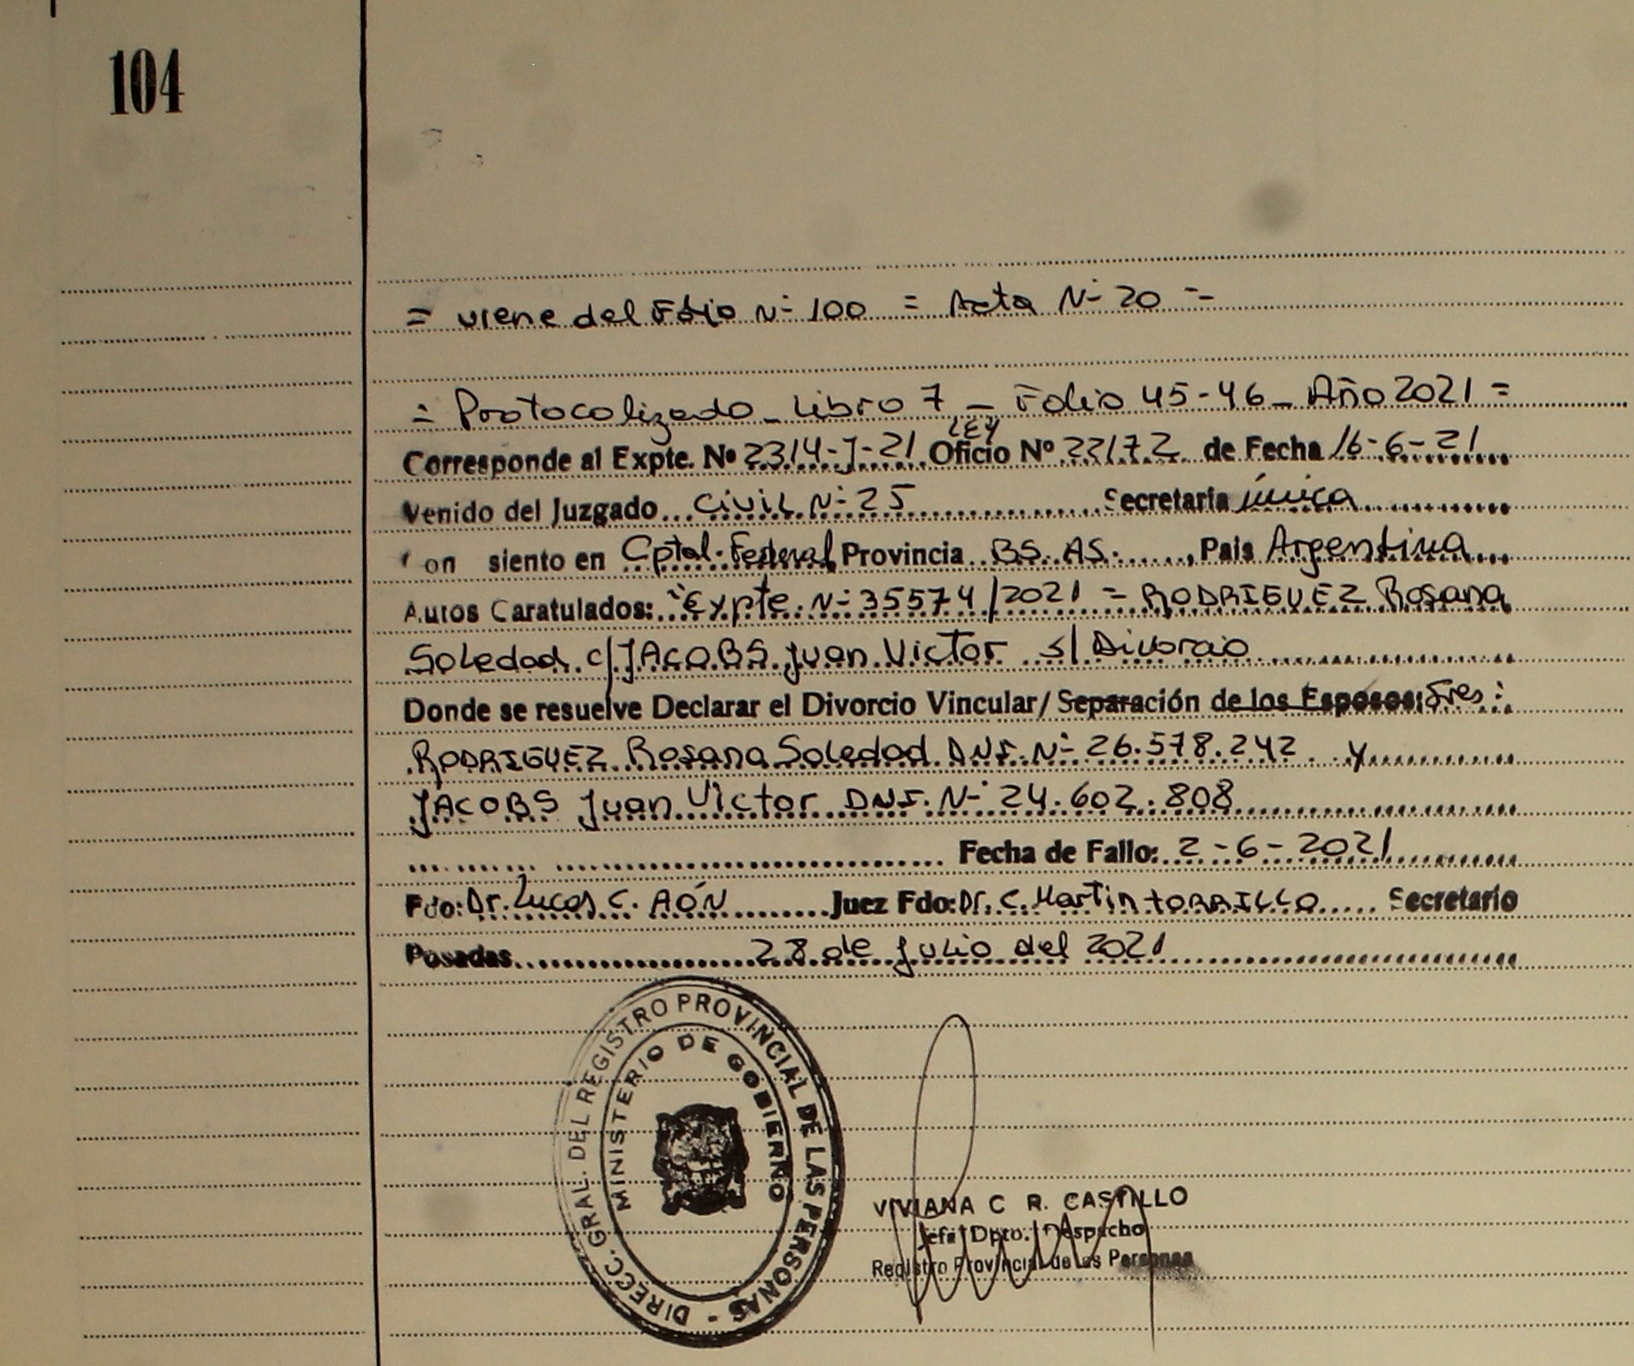 104
= viene del Folio N- 100 = Acta N- 20 =
= Protocolizado - Libro 7 - Folio 45-46 - Año 2021 =
LEY
Corresponde al Expte. Nº 2314-J-21 Oficio Nº 22172 de Fecha 16-6-21
Venido del Juzgado Civil N- 25 Secretaria única
on siento en Cptal. Federal Provincia BS. AS. , Pais Argentina
Autos Caratulados: "Expte. N- 35574/2021 - RODRIGUEZ Rosana
Soledad c/ JACOBS Juan Victor s/ Divorcio
Donde se resuelve Declarar el Divorcio Vincular/ Separación de los Esposos: Sres:
RODRIGUEZ Rosana Soledad DNI. N- 26.578.242 y
JACOBS Juan Victor DNI. N- 24.602.808
Fecha de Fallo: 2-6-2021
Fdo: Dr. Lucas C. AÓN Juez Fdo: Dr. C. Martin TORRILLO Secretario
Posadas 28 de Julio del 2021
DIRECC. GRAL. DEL REGISTRO PROVINCIAL DE LAS PERSONAS -
MINISTERIO DE GOBIERNO
VIVIANA C R. CASTILLO
Jefa Dpto. Despacho
Registro Provincial de las Personas